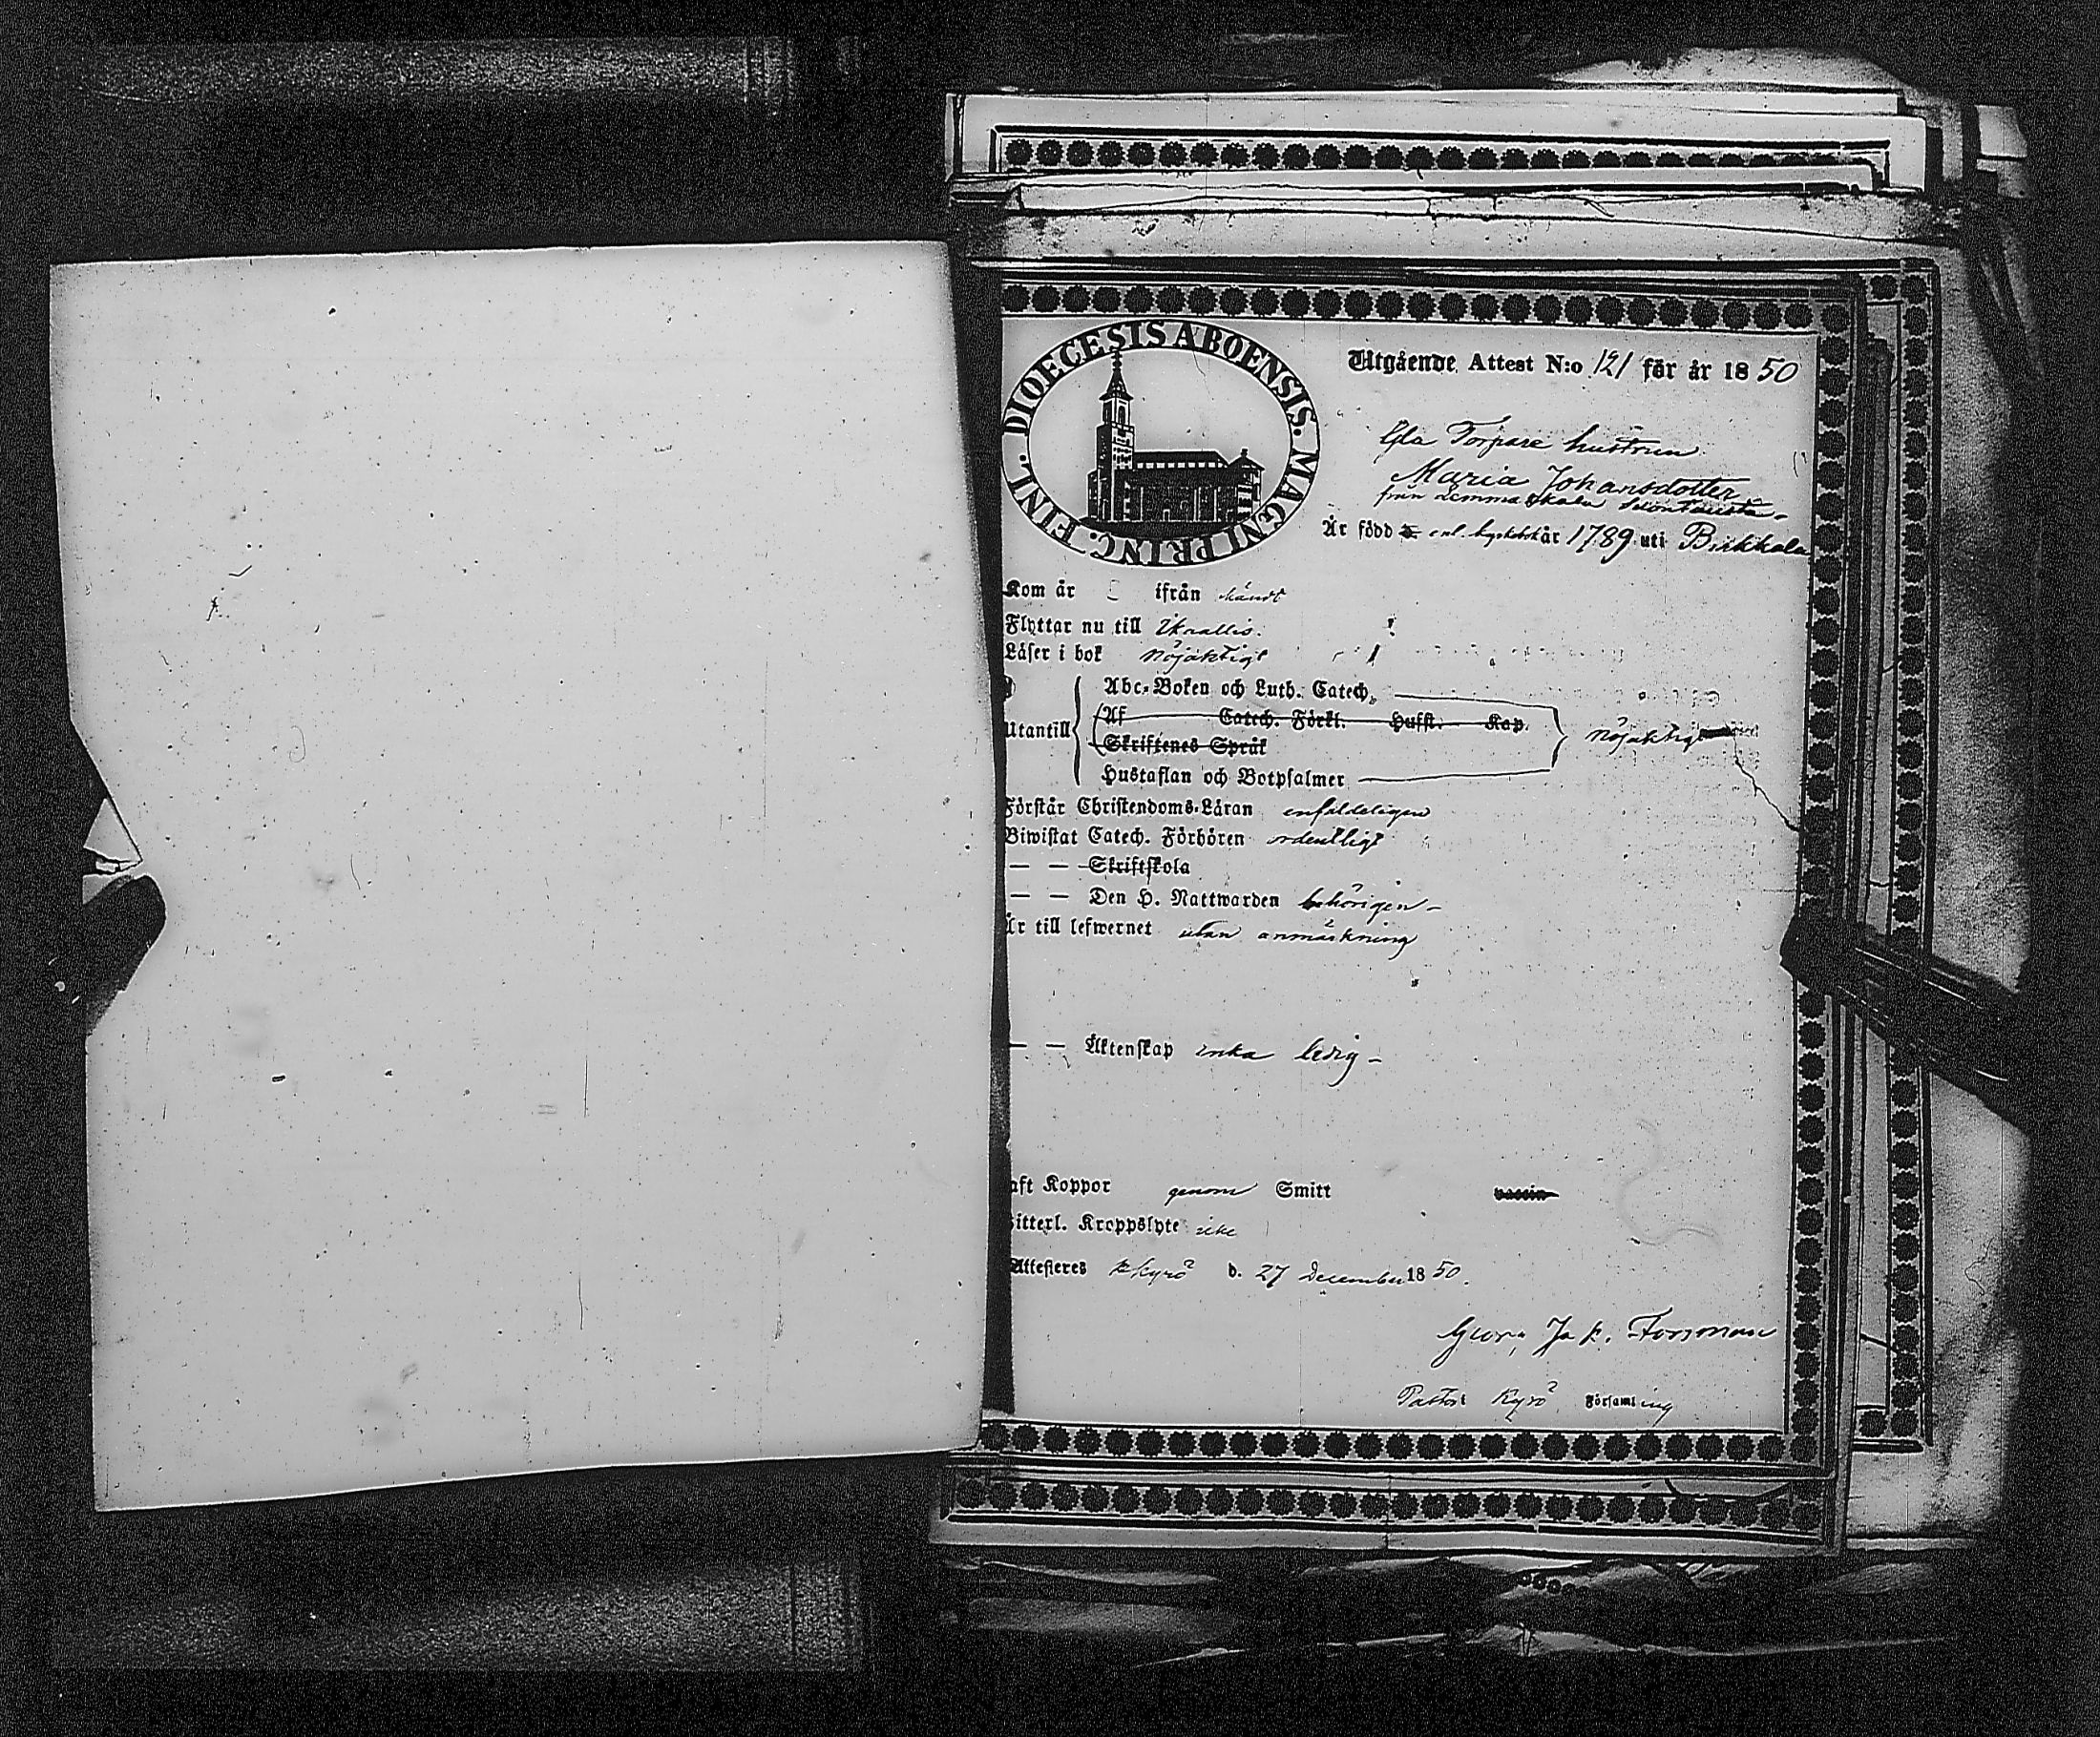 DIOECESIS ABOENSIS. MAGNI PRINC. FINL.
Utgående Attest N:o 121 för år 1850
Torpare hustrun
Maria Johansdotter
från
Är född enl. år 1789 uti Birkkala
Kom år ifrån
Flyttar nu till Ikaalis.
Läser i bok nöjaktigt
Utantill
Abc-Boken och Luth. Catech.
Af Catech. Förkl. Husst. Kap.
Skriftenes Språk
nöjaktigt
Hustaflan och Botpsalmer
Förstår Christendoms-Läran enfaldeligen
Biwistat Catech. Förhören ordentligt
— — Skriftskola
— — Den H. Nattwarden behörigen -
Är till lefwernet utan anmärkning
— — Äktenskap enka ledig -
aft Koppor genom Smitt vaccin
itterl. Kroppslyte icke
Attesteres Kyrö d. 27 December 1850.
Jak. Forsman
Pastor i Kyrö Församling